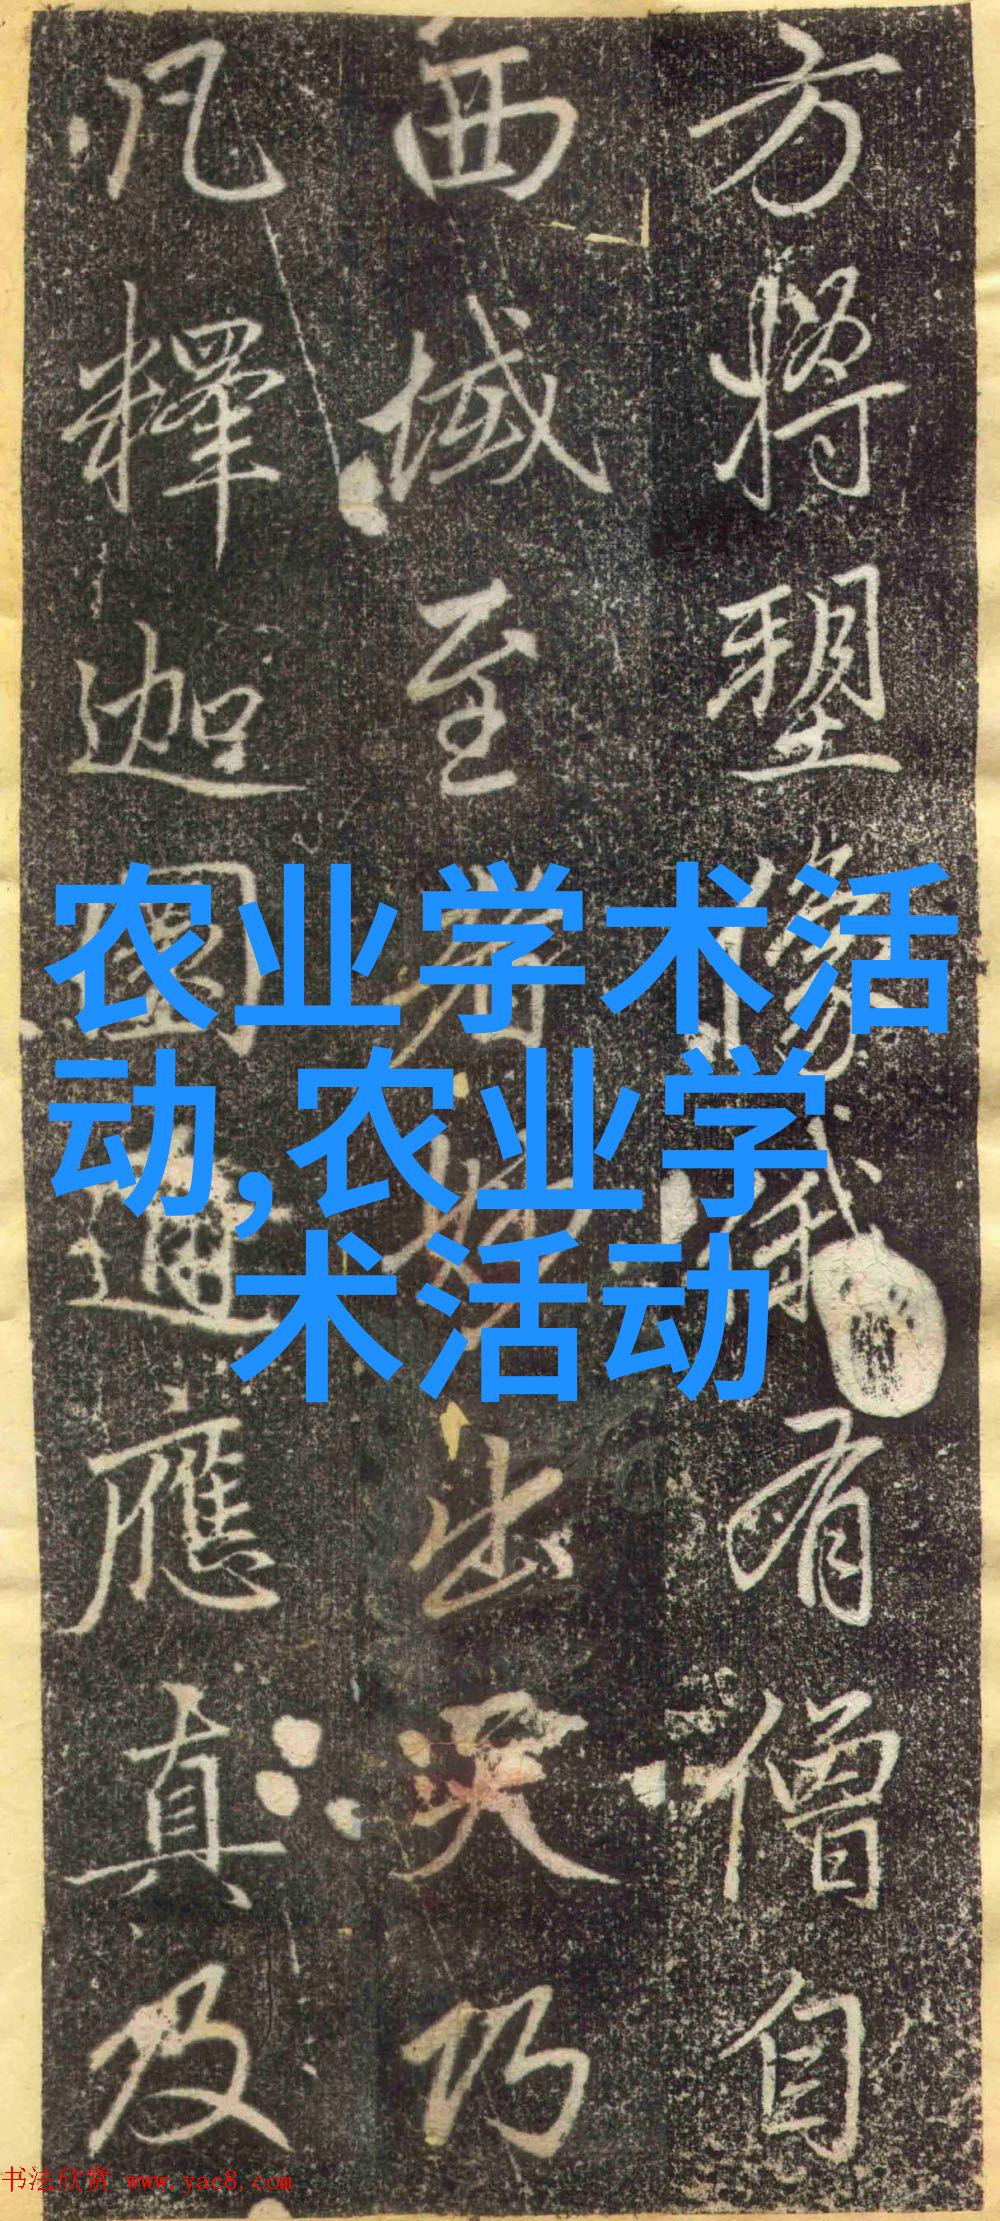 方将塑像儀有僧自
西域至者妙出天乃
凡释迦圖應真及
农业学术活
动,农业学
术活动
书法欣赏 www.yac8.com